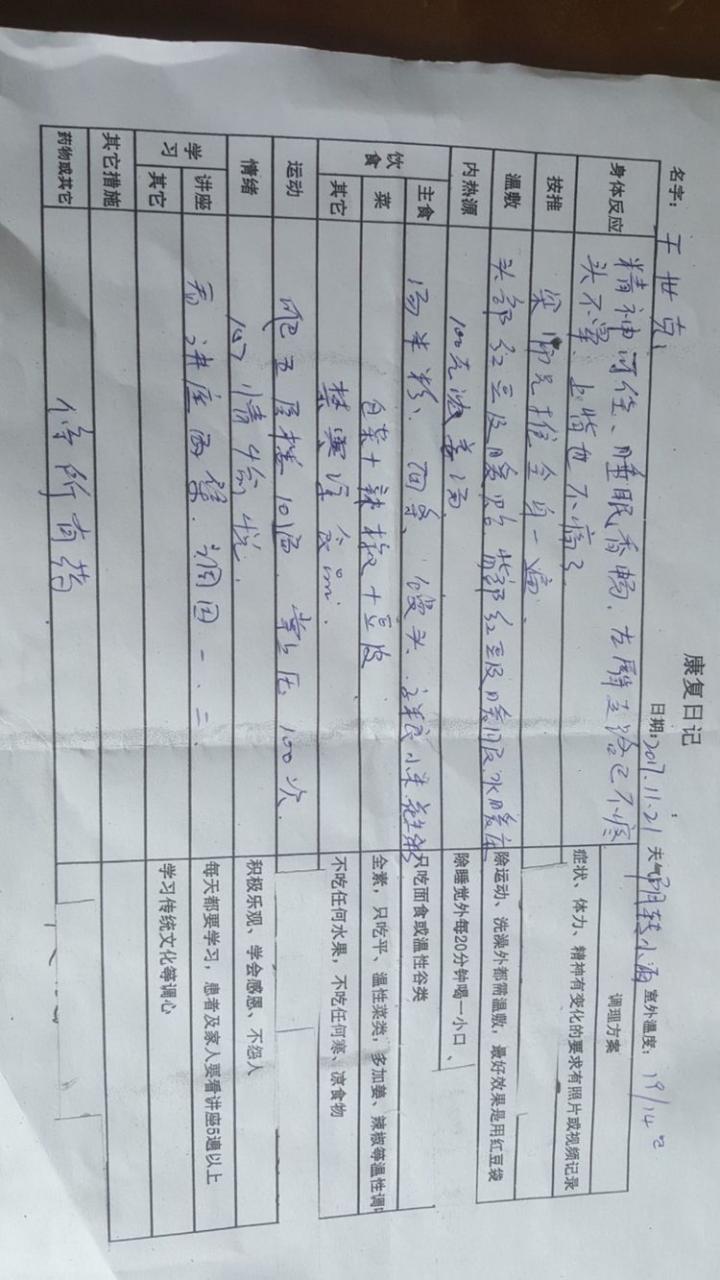 康复日记
名字: 王世克 日期:2017.11.21 天气 阴转小雨 室外温度: 19/14℃
身体反应 精神可佳、睡眠香畅、左 已不疼 调理方案
头不晕、上背也不痛了 症状、体力、精神有变化的要求有照片或视频记录
按推 梁师兄推全身一遍、
温敷 头部红豆及暖贴 背部红豆及暖 水暖 除运动、洗澡外都需温敷,最好效果是用红豆袋
内热源 100 姜汤 除睡觉外每20分钟喝一小口、
饮食 主食 汤米粉、面条、馒头、 小米 粥 只吃面食或温性谷类
菜 白菜+辣椒+豆皮 全素,只吃平、温性菜类,多加姜、辣椒等温性调
其它 禁 寒凉食品. 不吃任何水果,不吃任何寒、凉食物
运动 爬五层楼10遍 100次
情绪 心情愉悦. 积极乐观、学会感恩、不怨人
学习 讲座 看讲座两集. 一.二 每天都要学习,患者及家人要看讲座5遍以上
其它 学习传统文化等调心
其它措施
药物或其它 停所有药